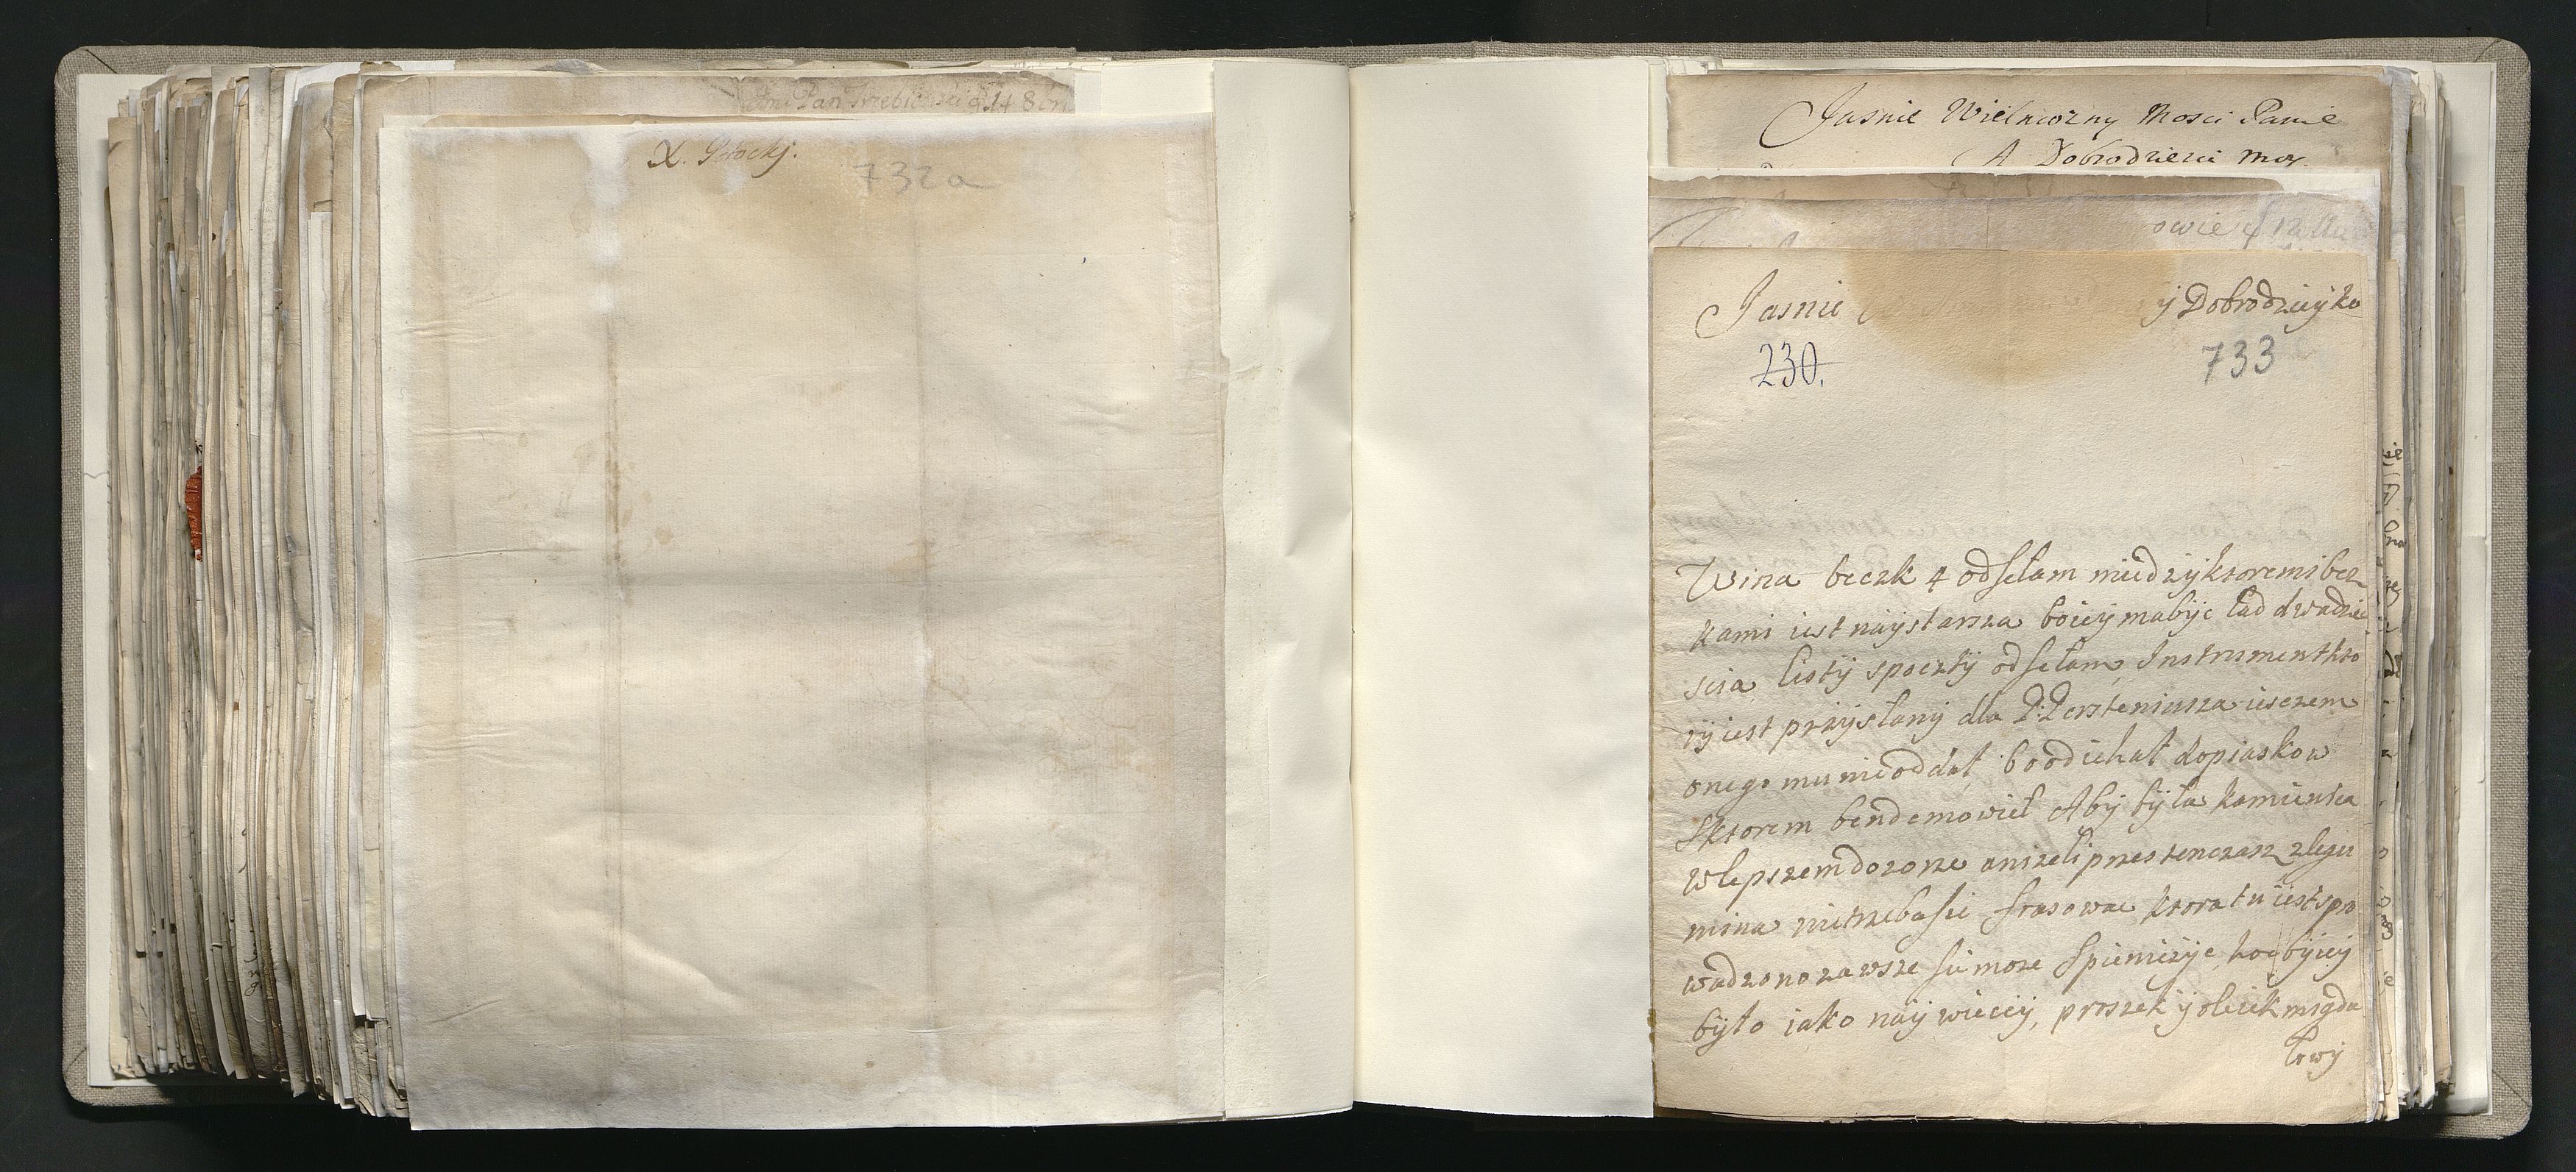 X. Płocky.
732a
Jasnie Wielmozny Mosci Panie
A Dobrodzieiu Moy.
owie d 12
Jasnie y Dobrodzieyko
230.
733
Wina beczk 4 odsełam miedzy ktoremi becz
kami iest naystarsza bo iey ma byc lad dwadzie
scia listy s poczty odsełam, Instrument kto
ry iest przysłany dla P: ieszczem
onego mu nie oddał bo odiehał do piaskow
s ktorem bende mowieł Aby była kamienica
w lepszem dozorze anizeli przes ten czasz, z legu
mina nie trzeba sie frasowac ktora tu iest spro
wadzono zawsze sie moze spienizyc, hocby iey
było iako naywiecey, proszek y oleiek migda
łowy